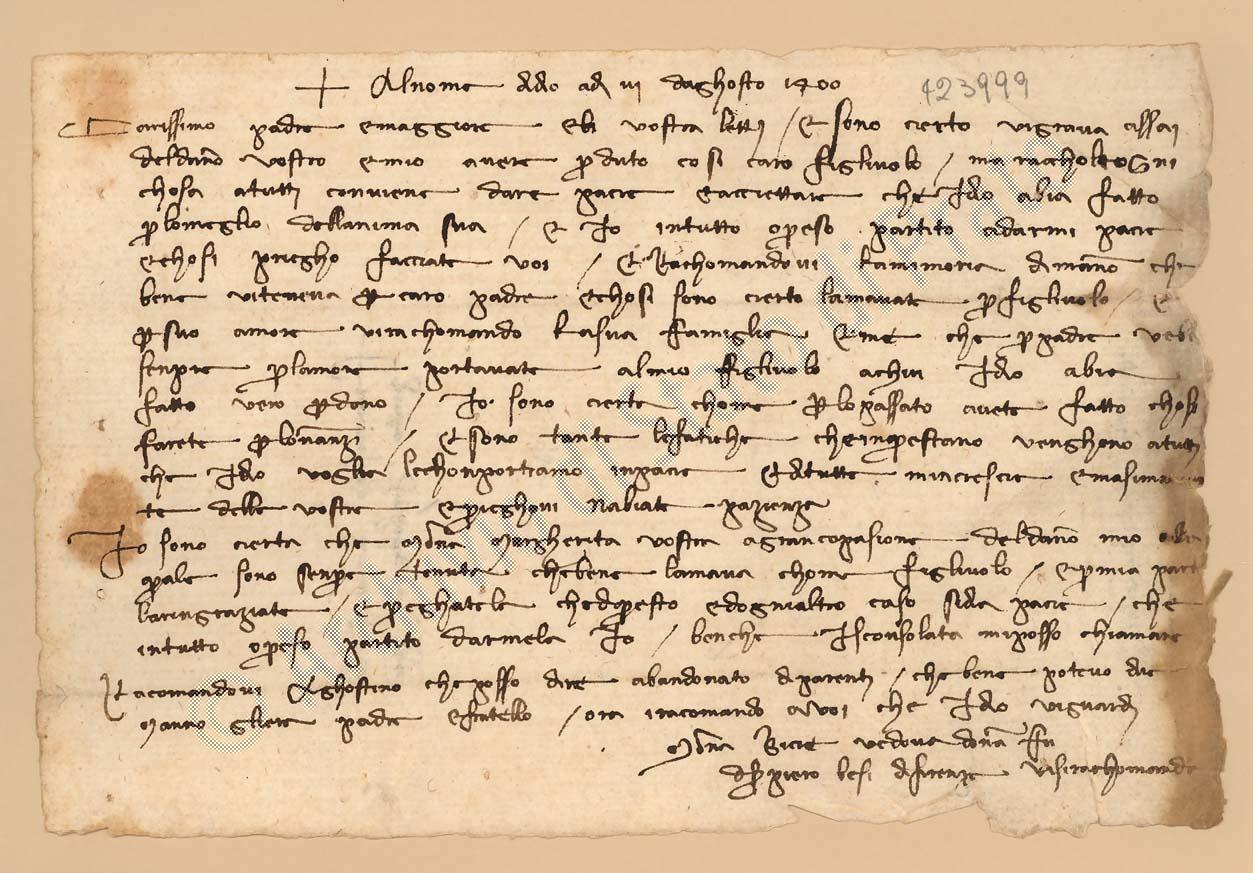 Al nome di dio adi vi daghosto 1400 423999
Carissimo padre e maggiore ebi vostra lett e sono cierto vi grava assai
del dano vostro e mio avere perduto cosi caro figlivolo ma racholto ogni
chosa a tutti conviene dare pacie e acciettare che Idio abia fatto
per lo meglio dell anima sua e io in tutto o preso partito a darmi pacie
e chosi priegho facciate voi e Rachomandovi la mimoria di mano che
bene vi teneva per caro padre e chosi sono cierto lamavate per figlivolo e
per suo amore vi rachomando la sua famiglia e me che per padre
senpre per lamore portavate al mio figlivolo a chui Idio abia
fatto vero perdono Io sono cierta chome per lo passato avete fatto chosi
farete per lo nanzi e sono tante le fatiche che in questano venghono a tutti
che Idio voglia le chonportiamo in pacie e di tutte mincrescie e masima
te delle vostre e prieghovi nabiate pazienza
Io sono cierta che Mona Margherita vostra a gran copasione del dano mio
per ale sono senpre tenuta che bene lamava chome figlivolo e per mia parte
la ringraziate e preghatela che di questo e dogni altro caso si dia pacie che
in tutto o preso partito darmela Io benche Isconsolata mi posso chiamare
Racomandovi Aghostino che posso dire abandonato di parenti che bene potevo dire
Manno gliera padre e fratello ora i racomando a voi che Idio vi guardi
Mona Bicie vedova dona fu
di ser piero besi di firenze vi si rachomanda